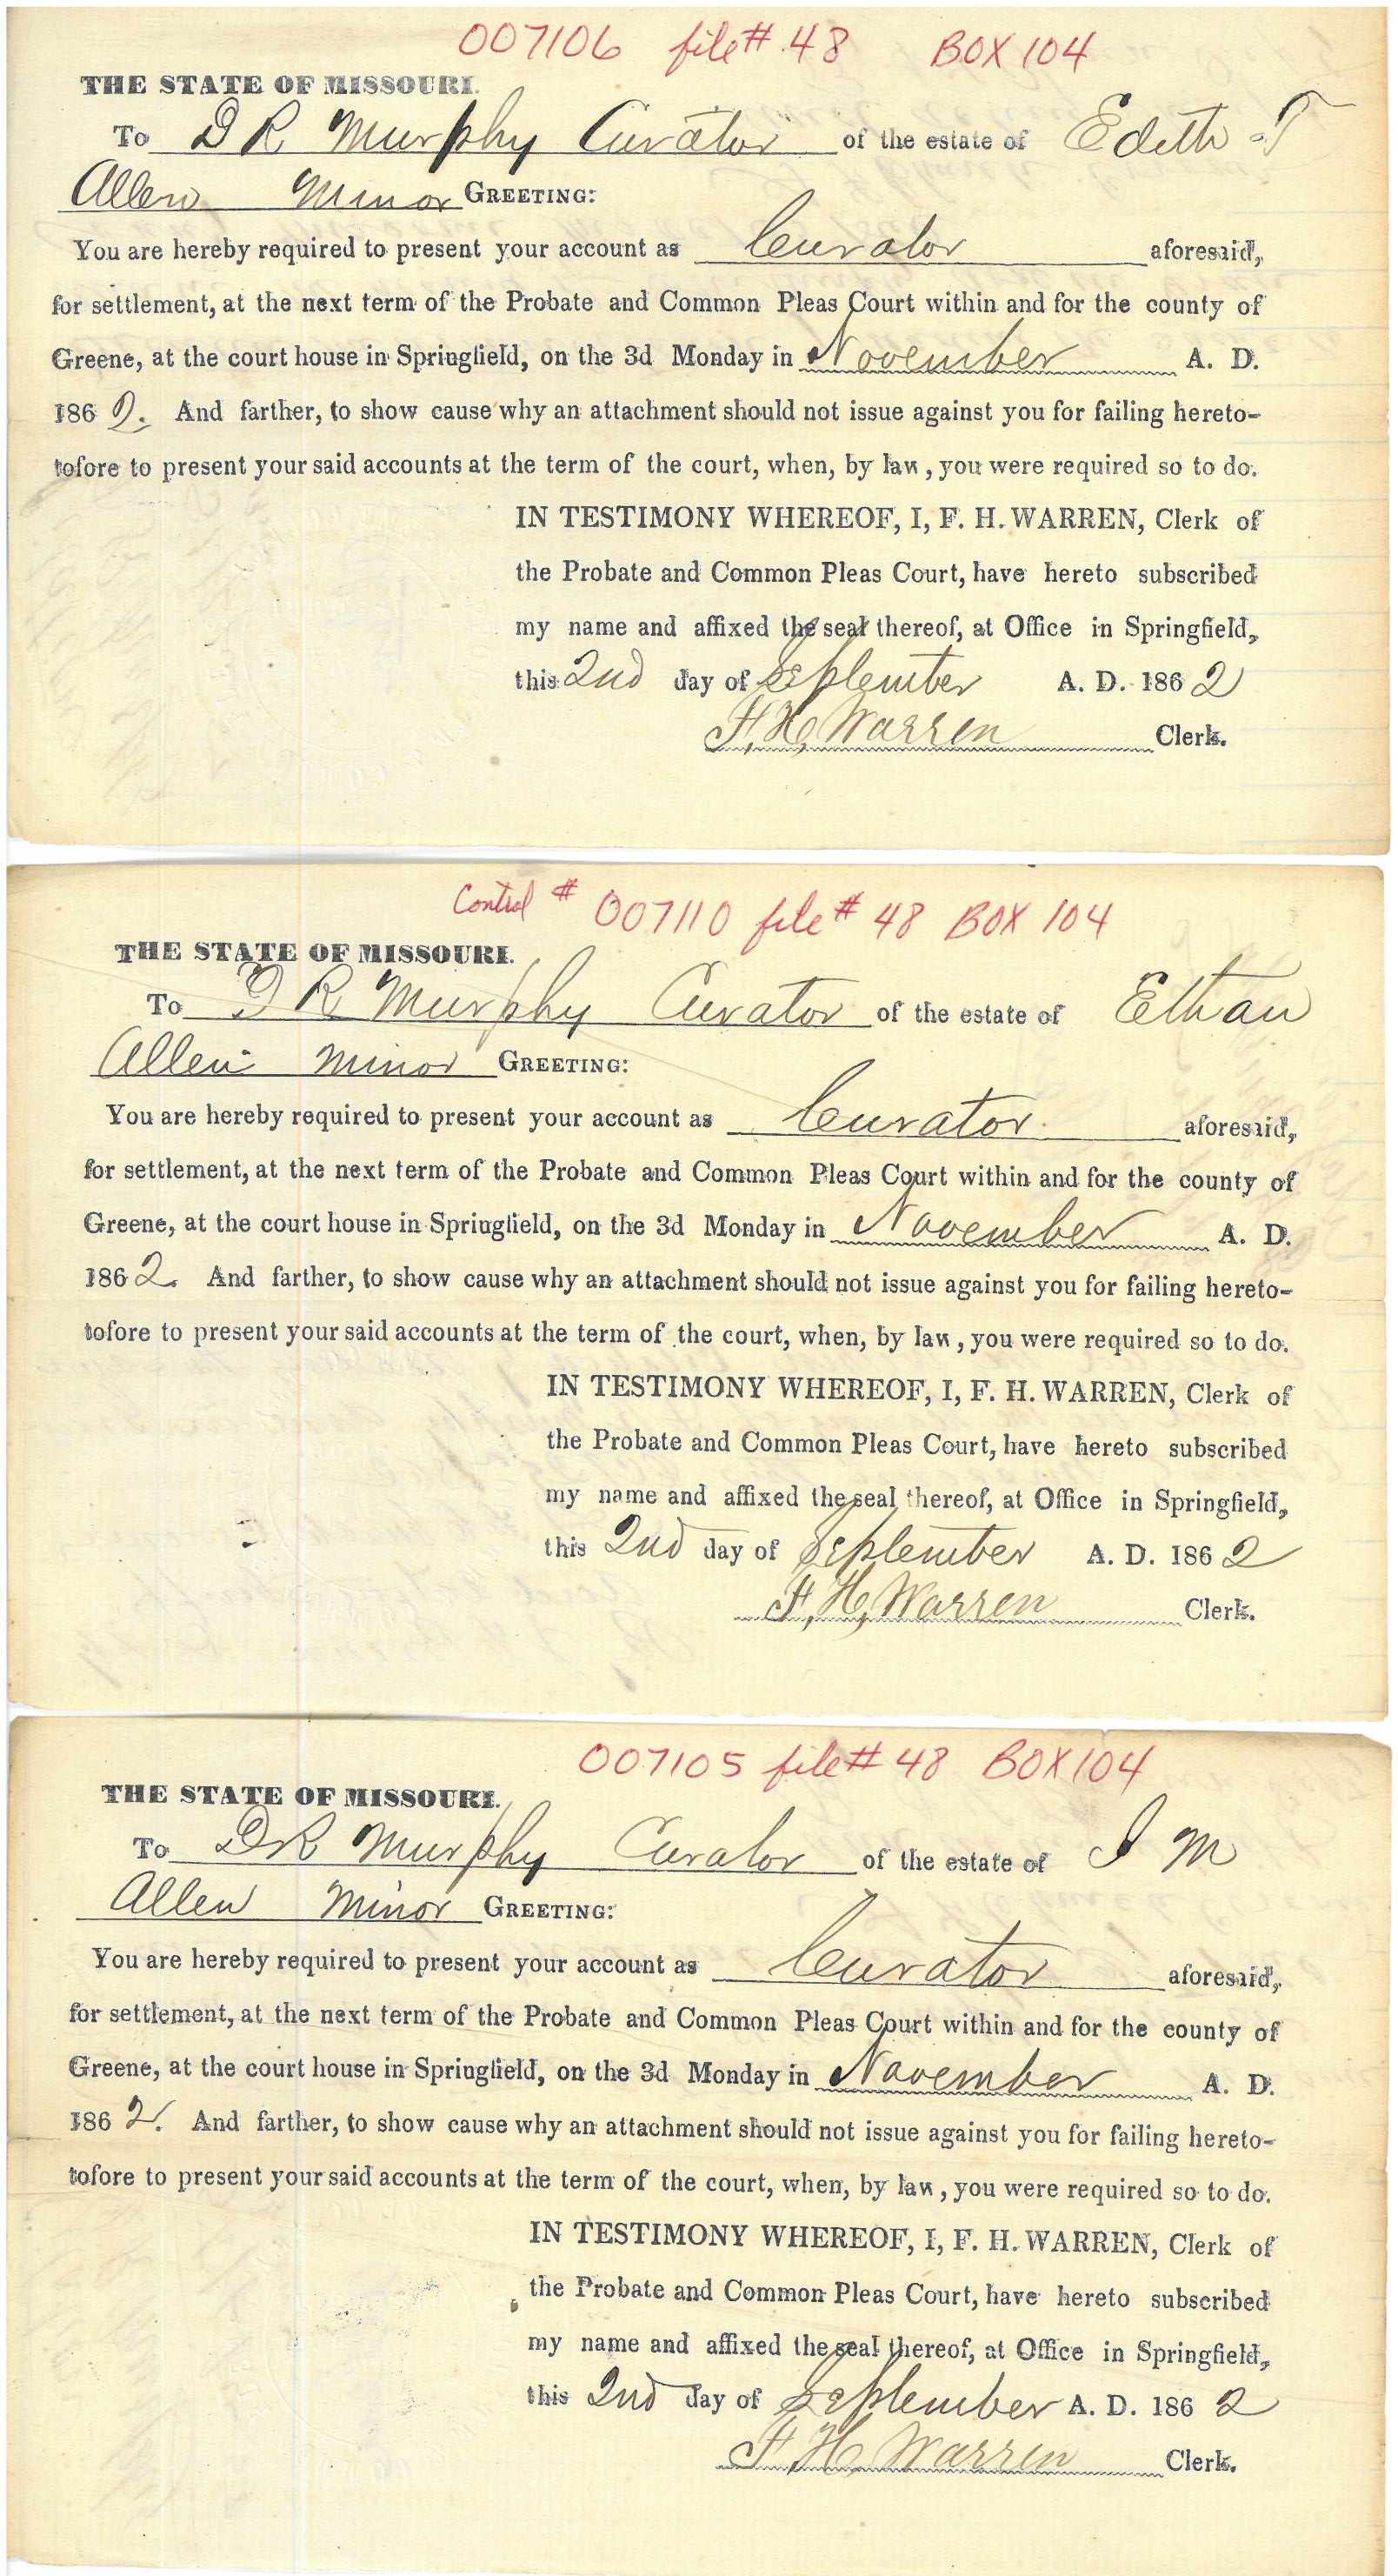 007106 file # 48 BOX 104
THE STATE OF MISSOURI.
To D R Murphy Curator of the estate of Edith T
Allen Minor GREETING:
You are hereby required to present your account as Curator aforesaid,
for settlement, at the next term of the Probate and Common Pleas Court within and for the county of
Greene, at the court house in Springfield, on the 3d Monday in November A. D.
1862. And farther, to show cause why an attachment should not issue against you for failing hereto-
tofore to present your said accounts at the term of the court, when, by law, you were required so to do.
IN TESTIMONY WHEREOF, I, F. H. WARREN, Clerk of
the Probate and Common Pleas Court, have hereto subscribed
my name and affixed the seal thereof, at Office in Springfield,
this 2nd day of September A. D. 1862
F. H. Warren Clerk.
Control # 007110 file # 48 BOX 104
THE STATE OF MISSOURI.
To D R Murphy Curator of the estate of Ethan
Allen Minor GREETING:
You are hereby required to present your account as Curator aforesaid,
for settlement, at the next term of the Probate and Common Pleas Court within and for the county of
Greene, at the court house in Springfield, on the 3d Monday in November A. D.
1862. And farther, to show cause why an attachment should not issue against you for failing hereto-
tofore to present your said accounts at the term of the court, when, by law, you were required so to do.
IN TESTIMONY WHEREOF, I, F. H. WARREN, Clerk of
the Probate and Common Pleas Court, have hereto subscribed
my name and affixed the seal thereof, at Office in Springfield,
this 2nd day of September A. D. 1862
F. H. Warren Clerk.
007105 file # 48 BOX 104
THE STATE OF MISSOURI.
To D R Murphy Curator of the estate of I M
Allen Minor GREETING:
You are hereby required to present your account as Curator aforesaid,
for settlement, at the next term of the Probate and Common Pleas Court within and for the county of
Greene, at the court house in Springfield, on the 3d Monday in November A. D.
1862. And farther, to show cause why an attachment should not issue against you for failing hereto-
tofore to present your said accounts at the term of the court, when, by law, you were required so to do.
IN TESTIMONY WHEREOF, I, F. H. WARREN, Clerk of
the Probate and Common Pleas Court, have hereto subscribed
my name and affixed the seal thereof, at Office in Springfield,
this 2nd day of September A. D. 1862
F. H. Warren Clerk.